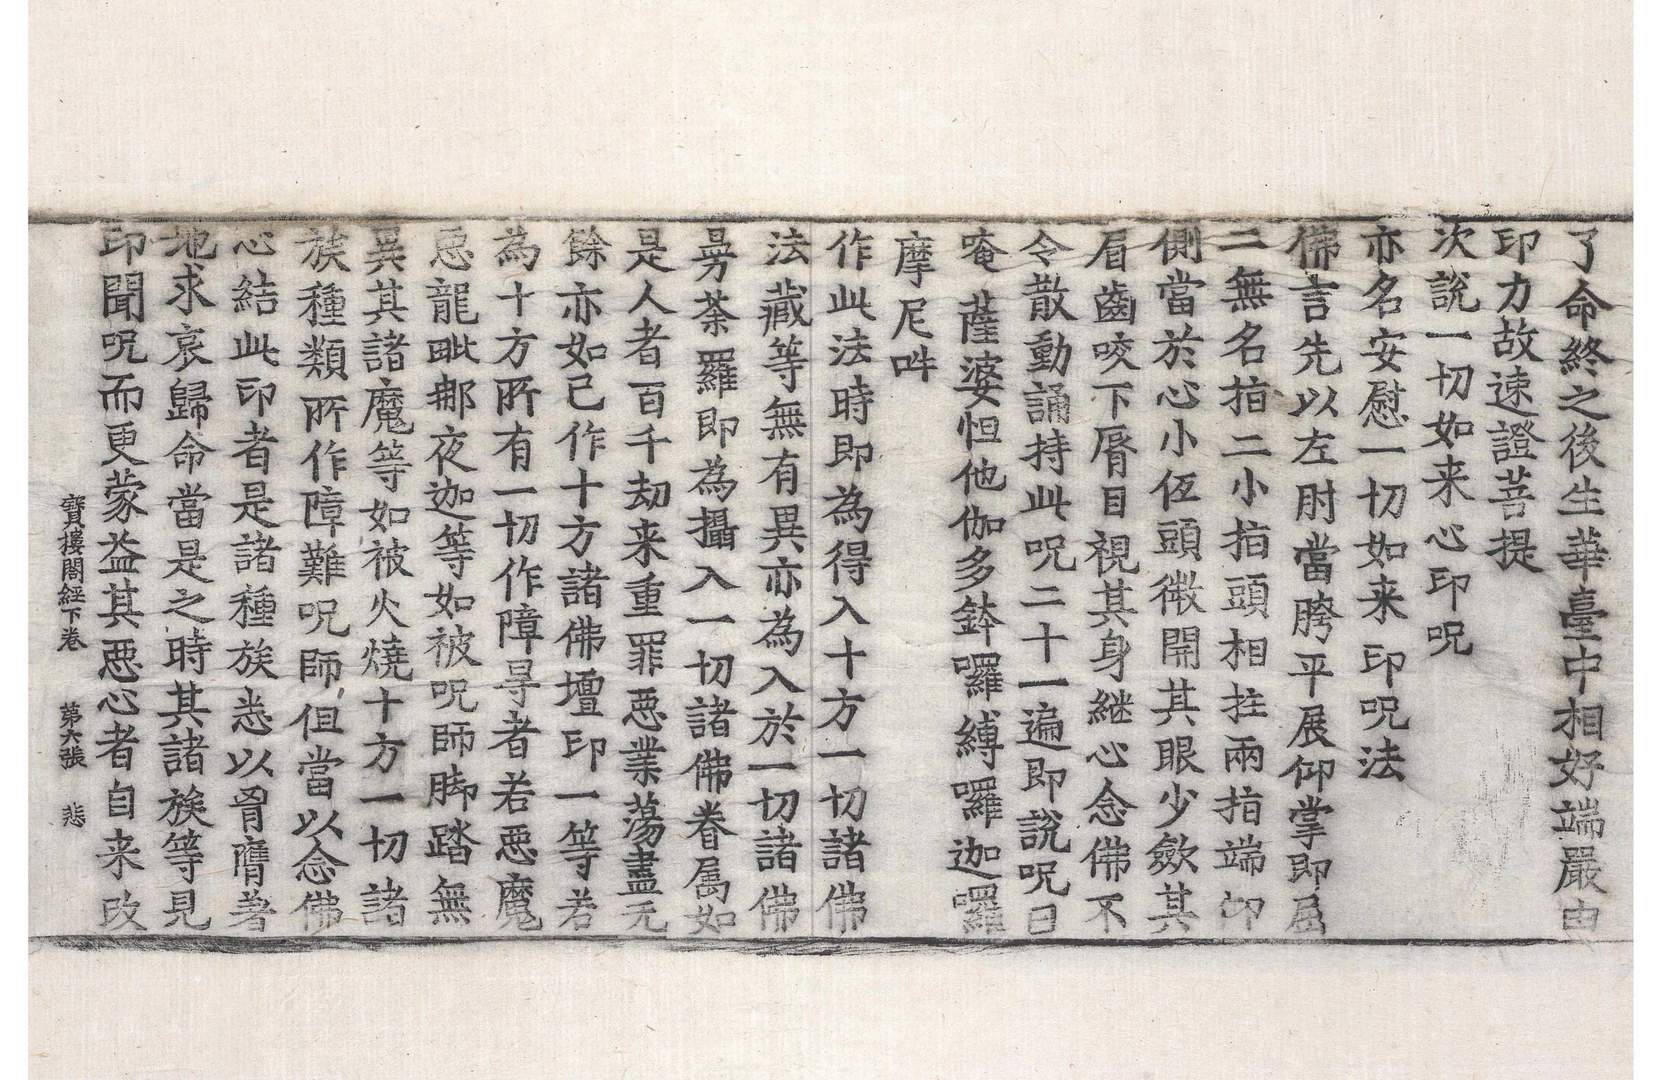 了命終之後生華臺中相好端嚴由
印力故速證菩提
次說一切如来心印呪
亦名安慰一切如来印呪法
佛言先以左肘當胯平展仰掌即屈
二無名指二小指頭相拄兩指端仰
側當於心小伍頭微開其眼少斂其
眉齒咬下脣目視其身継心念佛不
令散動誦持此呪二十一遍即說呪曰
唵薩婆怛他伽多鉢囉縛囉迦囉
摩尼吽
作此法時即為得入十方一切諸佛
法藏等無有異亦為入於一切諸佛
曼荼羅即為攝入一切諸佛眷属如
是人者百千劫来重罪惡業蕩盡无
餘亦如已作十方諸佛壇印一等若
為十方所有一切作障㝵者若惡魔
惡龍毗那夜迦等如被呪師脚踏無
異其諸魔等如被火燒十方一切諸
族種類所作障難呪師但當以念佛
心結此印者是諸種族悉以胷膺著
地求哀歸命當是之時其諸族等見
印聞呪而更蒙益其惡心者自来改
寶樓閣經下卷 第六張 悲